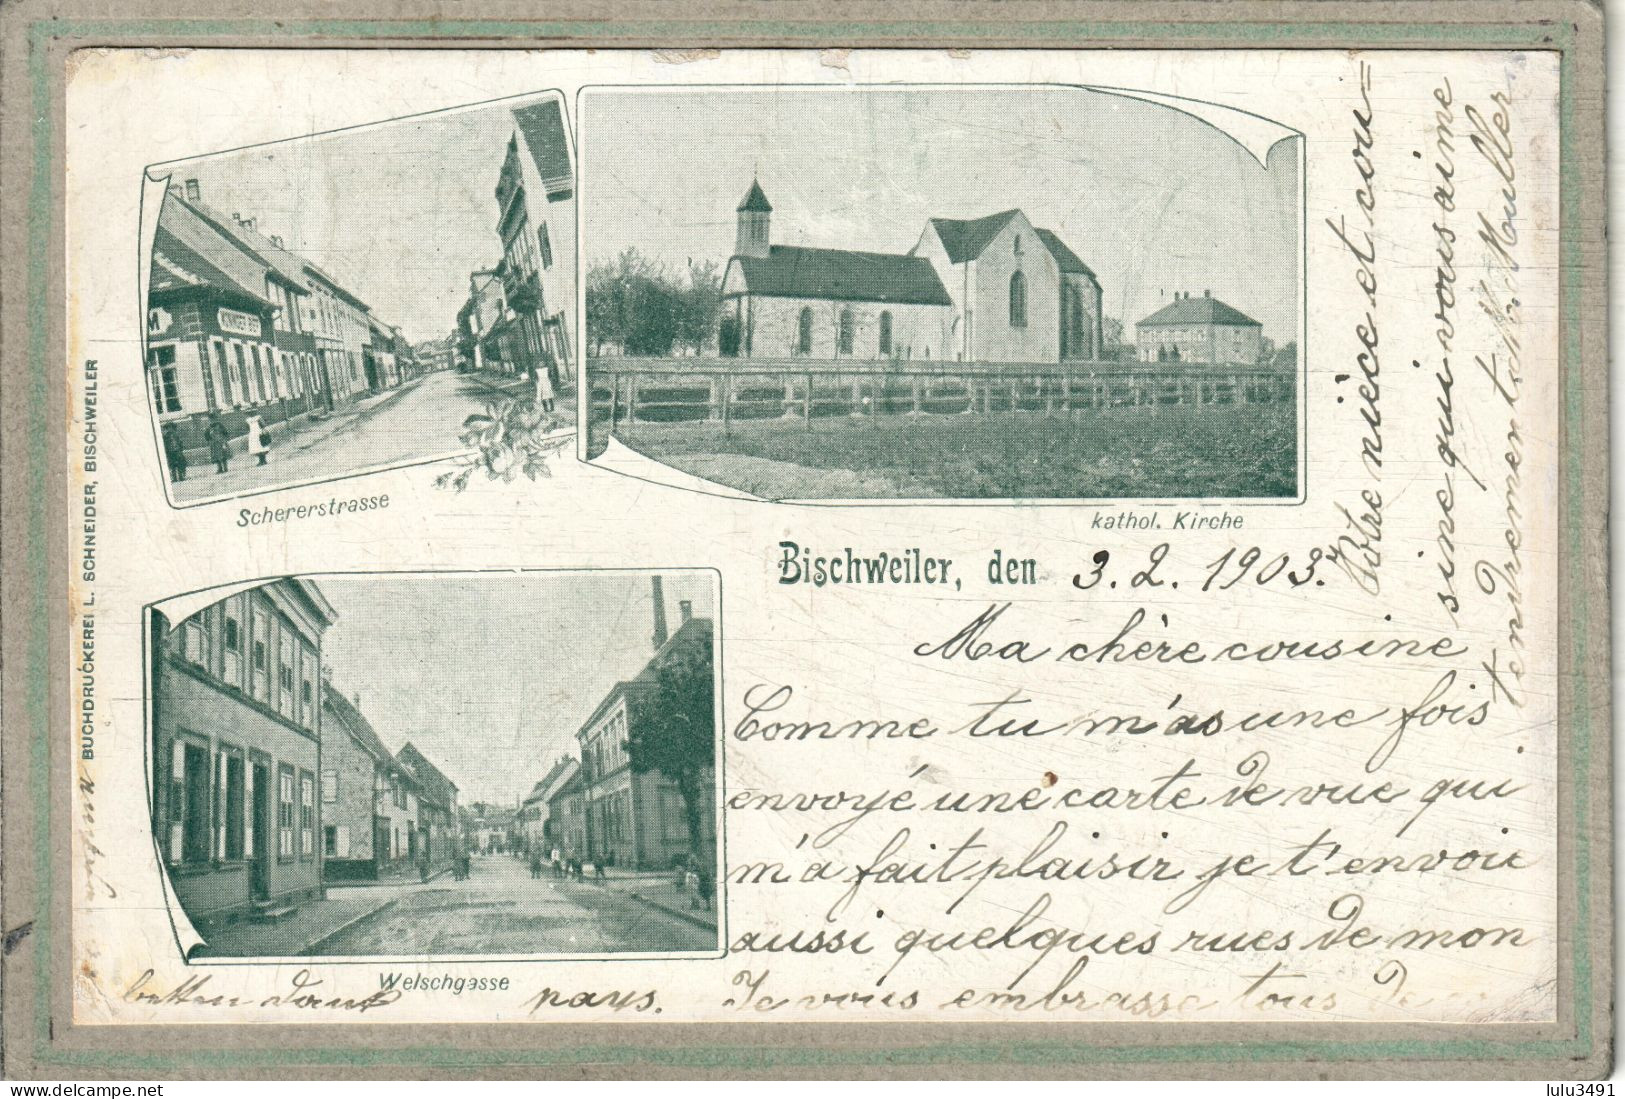 KINNGER-BECK
Schererstrasse
kathol. Kirche
Bischweiler, den 3. 2. 1903.
Ma chère cousine
Comme tu m'as une fois
envoyé une carte de vue qui
m'a fait plaisir je t'envoie
aussi quelques rues de mon
pays. Je vous embrasse tous de
Votre nièce et cou=
sine qui vous aime
tendrement Muller
Welschgasse
BUCHDRUCKEREI L. SCHNEIDER, BISCHWEILER
©DELCAMPE.NET
lulu3491